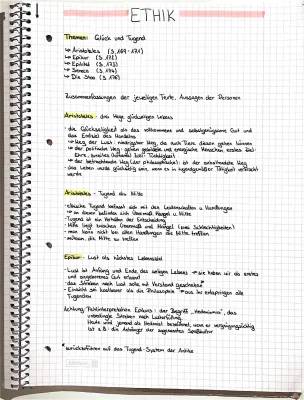 ETHIK
Themen: Glück und Tugend
↳ Aristoteles (S. 169-171)
↳ Epikur (S. 172)
↳ Epiktet (S. 173)
↳ Seneca (S. 174)
↳ Die Stoa (S. 176)
Zusammenfassungen der jeweiligen Texte, Aussagen der Personen
Aristoteles - drei Wege glückseligen Lebens
- die Glückseligkeit als das vollkommene und selbstgenügsame Gut und
das Endziel des Handelns
↳ Weg der Lust: niedrigster Weg, da auch Tiere diesen gehen können
↳ der politische Weg: gehen gebildete und energische Menschen, erstes Ziel:
Ehre, zweites (höheres) Ziel: Tüchtigkeit
↳ der betrachtende Weg (der philosophische): ist der erstrebendste Weg
- das Leben würde glückselig sein, wenn es in tugendgemäßer Tätigkeit verbracht
werde
Aristoteles - Tugend als Mitte
- ethische Tugend befasst sich mit den Leidenschaften u. Handlungen
↳ an denen befinden sich Übermaß, Mangel u. Mitte
- Tugend ist ein Verhalten der Entscheidung
- Mitte liegt zwischen Übermaß und Mangel (zwei Schlechtigkeiten)
- man kann nicht bei allen Handlungen die Mitte treffen
- mühsam, die Mitte zu treffen
Epikur - Lust als höchstes Lebensziel
- Lust ist Anfang und Ende des seligen Lebens → sie haben wir als erstes
und angeborenes Gut erkannt
- das Streben nach Lust solle mit Verstand geschehen*
- Einsicht sei kostbarer als die Philosophie → aus ihr entspringen alle
Tugenden
Achtung, Fehlinterpretation Epikurs: der Begriff „Hedonismus", das
unbedingte Streben nach Lusterfüllung.
Heute wird jemand als Hedonist bezeichnet, wenn er vergnügungssüchtig
ist z.B. die Anhänger der sogenannten Spaßkultur
* zurückzuführen auf das Tugend-System der Antike